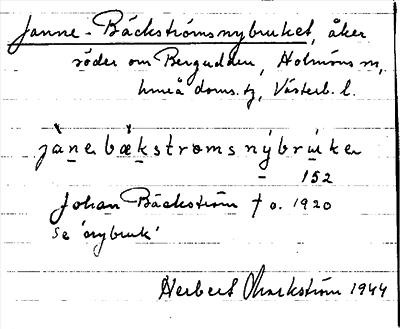 Janne-Bäckströmsnybruket, åker
söder om Bergudden, Holmöns sn,
Umeå doms. tg, Västerb. l.
jànɐ bækstrɵms ný̱brʉ̱kɐ
152
Johan Bäckström † o. 1920
se 'nybruk'
Herbert Markström 1944